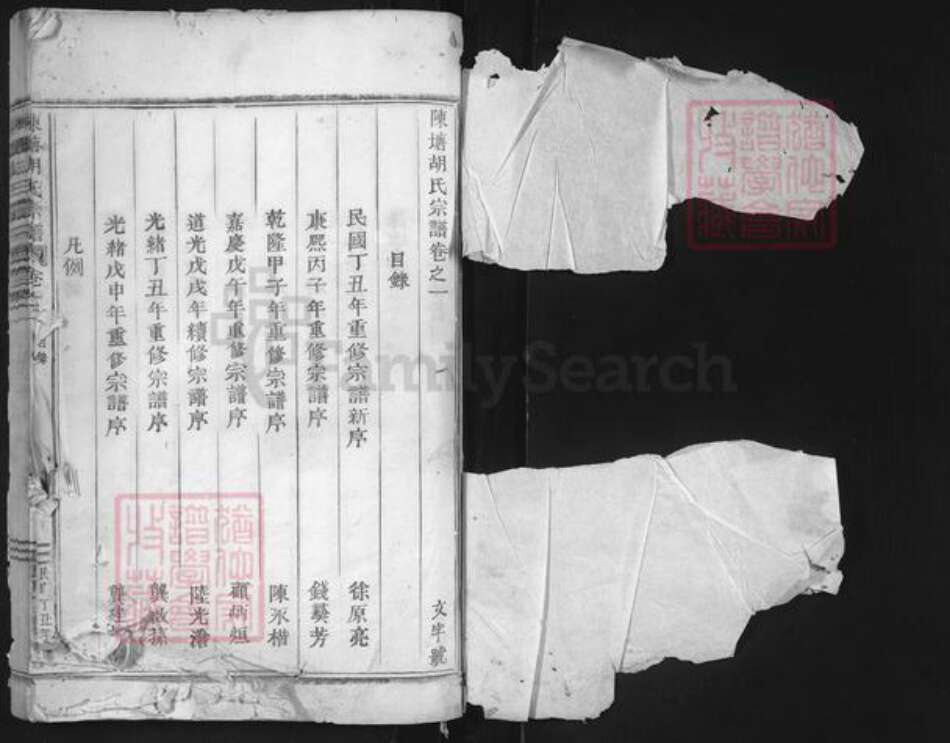 陳墻胡氏宗譜卷之一 文字號
目錄
民國丁丑年重修宗譜新序 徐原亮
康熙丙子年重修宗譜序 錢葵芳
乾隆甲子年重修宗譜序 陳永楷
嘉慶戊午年重修宗譜序 顧炳烜
道光戊戌年續修宗譜序 陸光
光緒丁丑年重修宗譜序 龔
光緒戊申年重修宗譜序 龔
凡例
胡氏宗譜 卷
FamilySearch